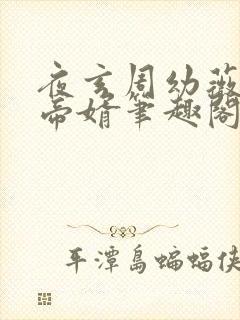 夜玄周幼薇
帝婿笔趣阁
平潭岛蝙蝠侠